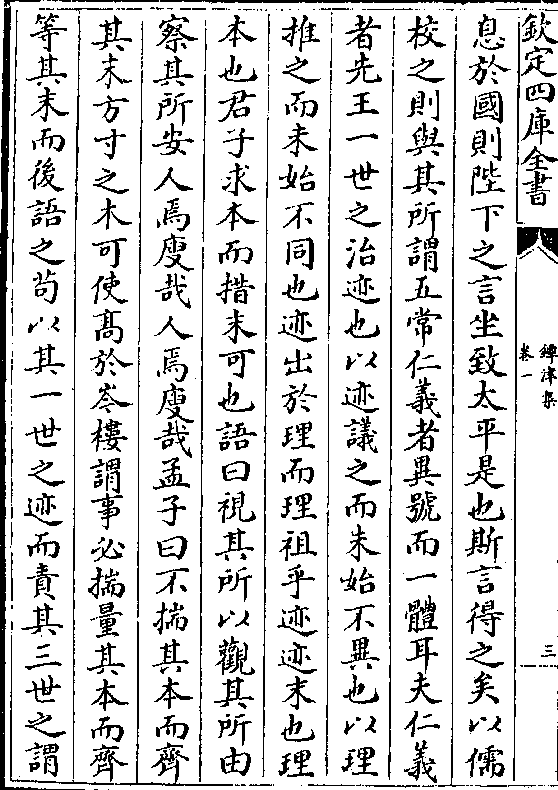 欽定四庫全書
鐔津集
卷一
三
息於國則陛下之言坐致太平是也斯言得之矣以儒
校之則與其所謂五常仁義者異號而一體耳夫仁義
者先王一世之治迹也以迹議之而未始不異也以理
推之而未始不同也迹出於理而理祖乎迹迹末也理
本也君子求本而措末可也語曰視其所以觀其所由
察其所安人焉廋哉人焉廋哉孟子曰不揣其本而齊
其末方寸之木可使髙於岑樓謂事必揣量其本而齊
等其末而後語之茍以其一世之迹而責其三世之謂